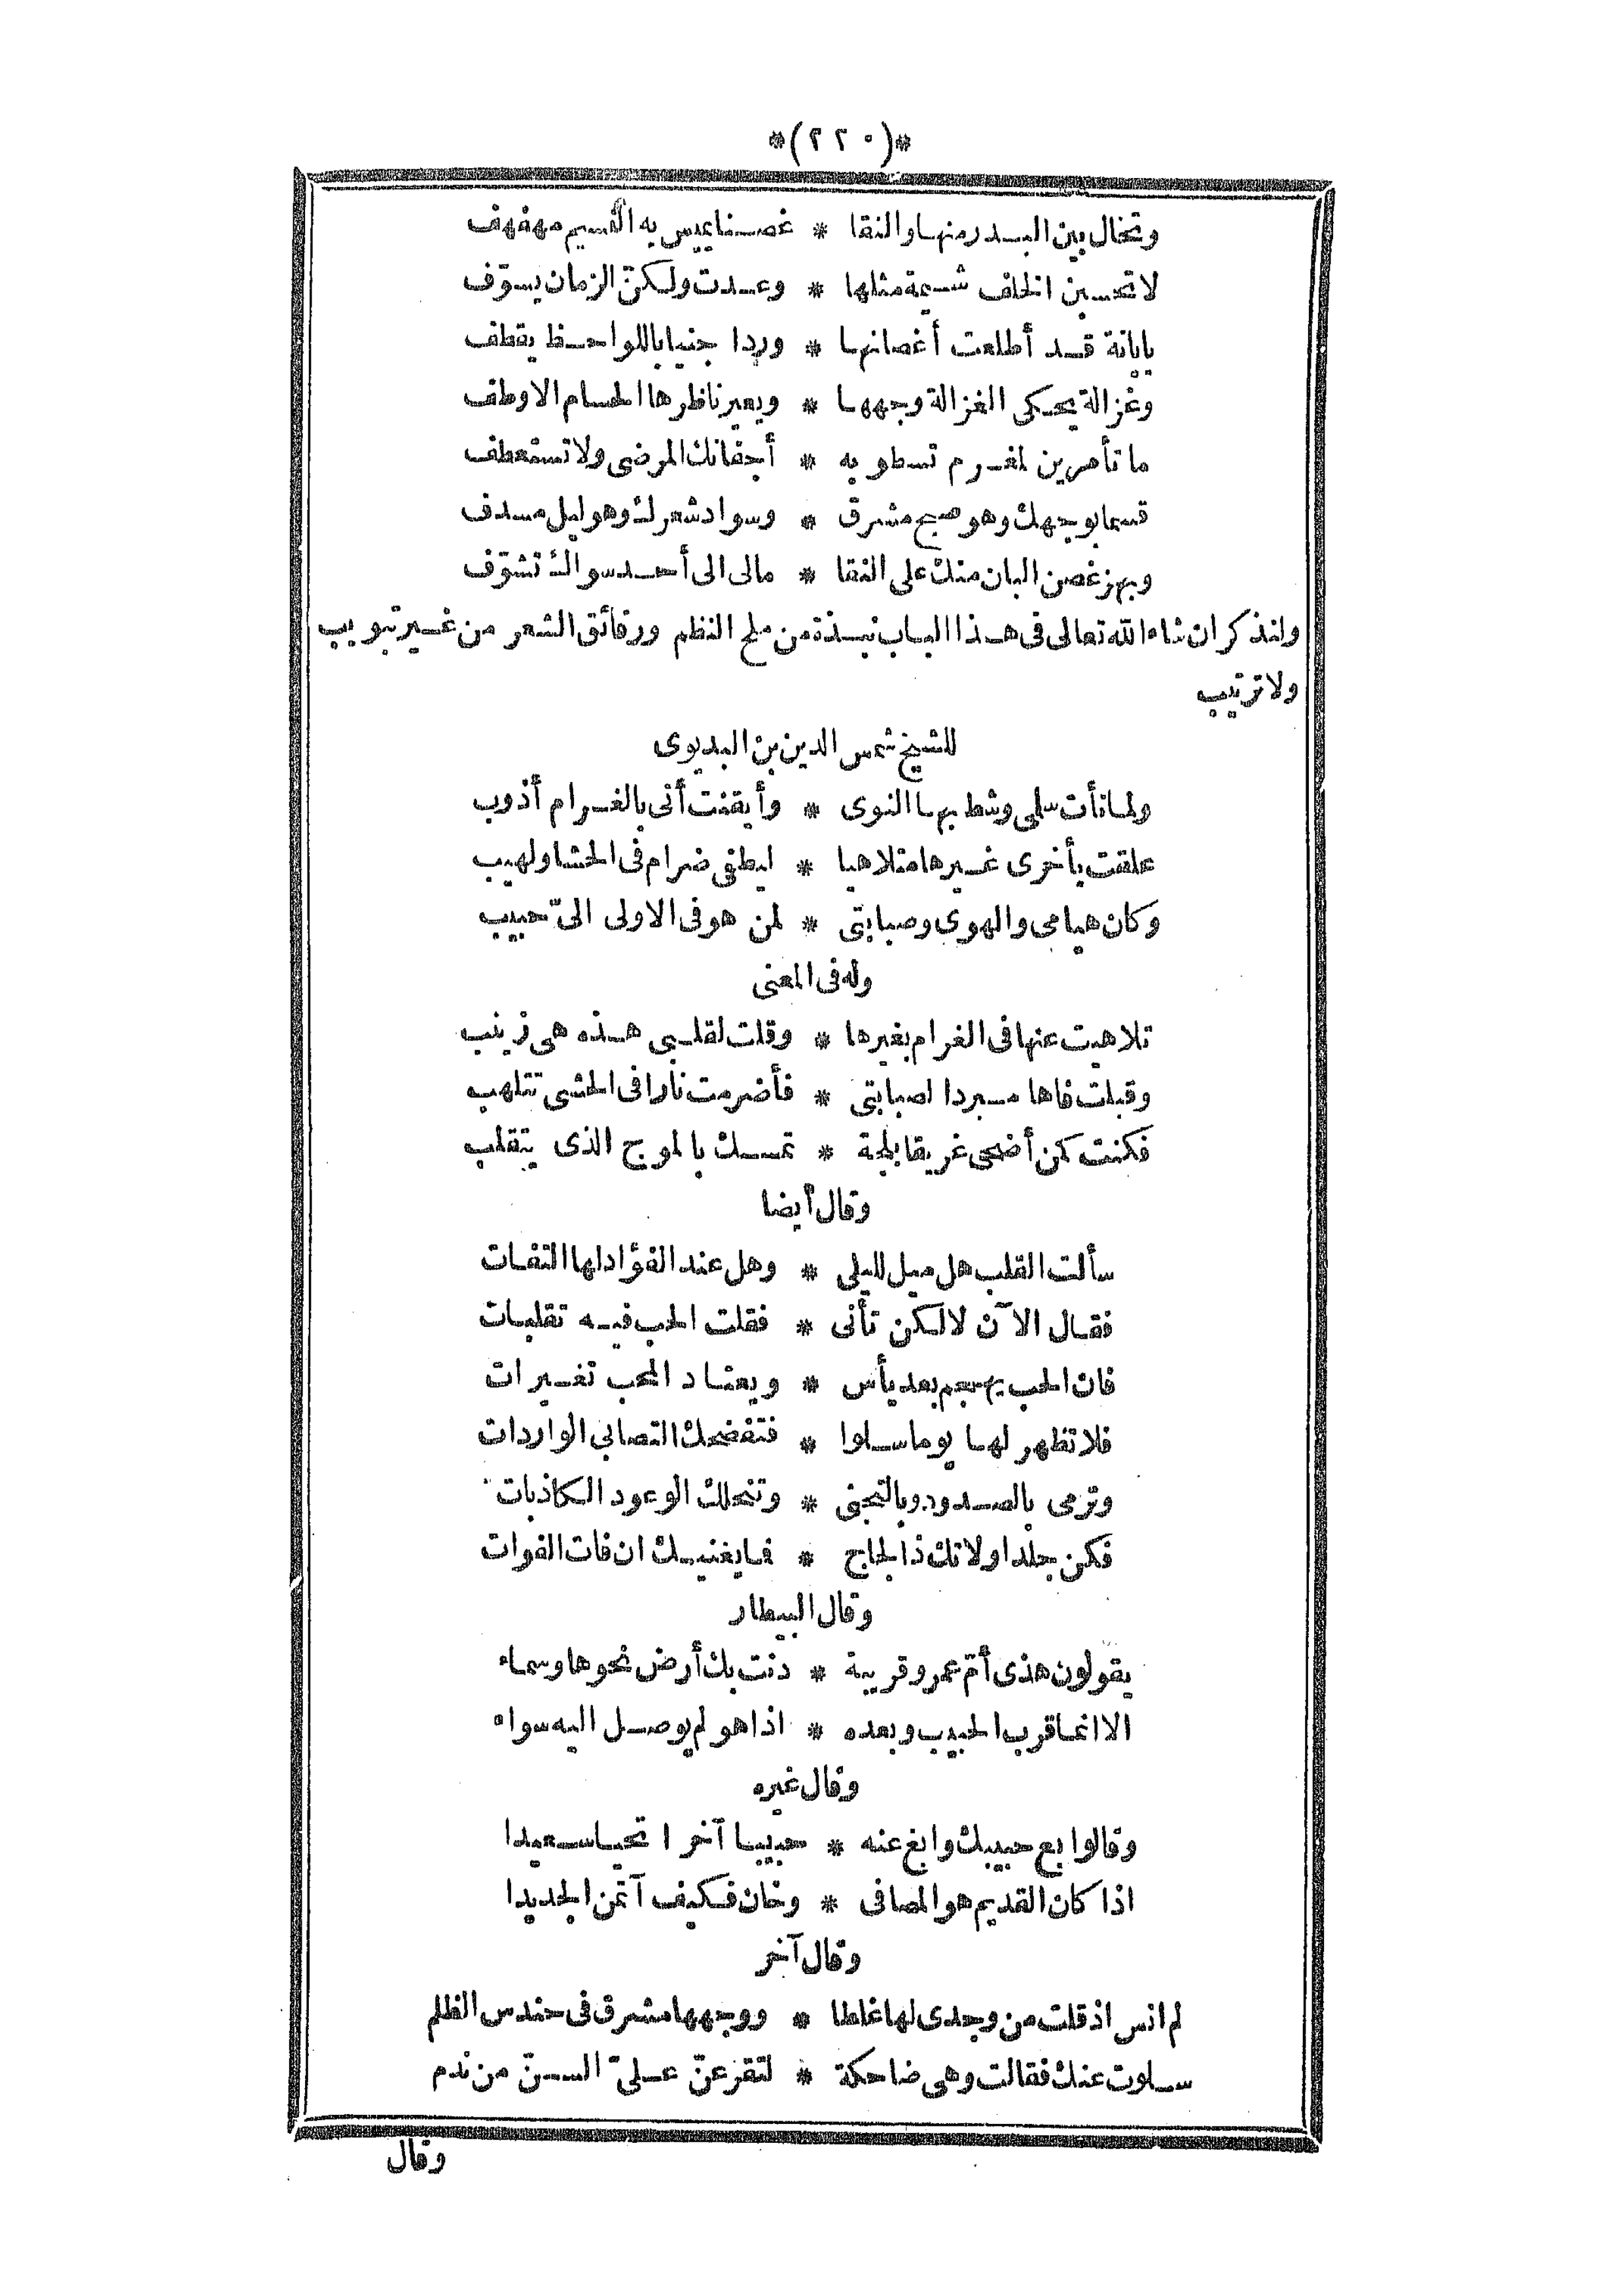 *(٢٢٠)*
وتخال بين البدر منها والنقا * غصنا يميس به النسيم مهفهف
لا تحسبن الخلف شيمة مثلها * وعدت ولكنّ الزمان يسوّف
يا بانة قد أطلعت أغصانها * وردا جنيا باللواحظ يقطف
وغزالة يحكى الغزالة وجهها * ويعير ناظرها الحسام الاوطف
ما تأمرين لمغرم تسطو به * أجفانك المرضى ولا تستعطف
قسما بوجهك وهو صبح مشرق * وسواد شعرك وهو ليل مسدف
وبهز غصن البان منك على النقا * مالى الى أحد سواك تشوّف
ولنذكر ان شاء الله تعالى فى هذا الباب نبذة من ملح النظم ورقائق الشعر من غير تبويب
ولا ترتيب
للشيخ شمس الدين بن البديوى
ولما نأت سلمى وشط بها النوى * وأيقنت أنى بالغرام أذوب
علقت بأخرى غيرها متلاهيا * ليطفى ضرام فى الحشا ولهيب
وكان هيامى والهوى وصبابتى * لمن هو فى الاولى الىّ حبيب
وله فى المعنى
تلاهيت عنها فى الغرام بغيرها * وقلت لقلبى هذه هى زينب
وقبلت فاها مبردا لصبابتى * فأضرمت نارا فى الحشى تتلهب
فكنت كمن أضحى غريقا بلجة * تمسك بالموج الذى يتقلب
وقال أيضا
سألت القلب هل ميل لليلى * وهل عند الفؤاد لها التفات
فقال الآن لا لكن تأنى * فقلت الحب فيه تقلبات
فان الحب يهجم بعد يأس * ويعتاد المحب تغيرات
فلا تظهر لها يوما سلوا * فتفضحك التصابى الواردات
وترمى بالصدود وبالتجنى * وتنحلك الوعود الكاذبات
فكن جلدا ولا تك ذا لجاج * فما يغنيك ان فات الفوات
وقال البيطار
يقولون هذى أمّ عمرو قريبة * دنت بك أرض نحوها وسماء
الا انما قرب الحبيب وبعده * اذا هو لم يوصل اليه سواء
وقال غيره
وقالوا بع حبيبك وابغ عنه * حبيبا آخرا تحيا سعيدا
اذا كان القديم هو المصافى * وخان فكيف آتمن الجديدا
وقال آخر
لم انس اذ قلت من وجدى لها غلطا * ووجهها مشرق فى حندس الظلم
سلوت عنك فقالت وهى ضاحكة * لتقرعنّ علىّ السنّ من ندم
وقال